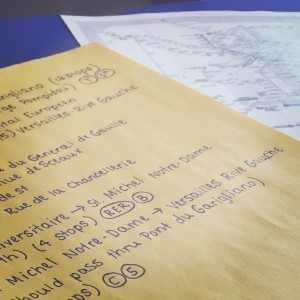 arigliano (9 stops)
ge Pompidou) T 3
ital Européen
s) Versailles-Rive Gauche
du General de Gaulle
nue de Sceaux
de St
Rue de la Chancellerie
niversitaire → St. Michel Notre-Dame
th) (4 stops) RER B
Michel Notre-Dame → Versailles Rive Gauche
should pass thru Pont du Garigliano)
ps) C 5